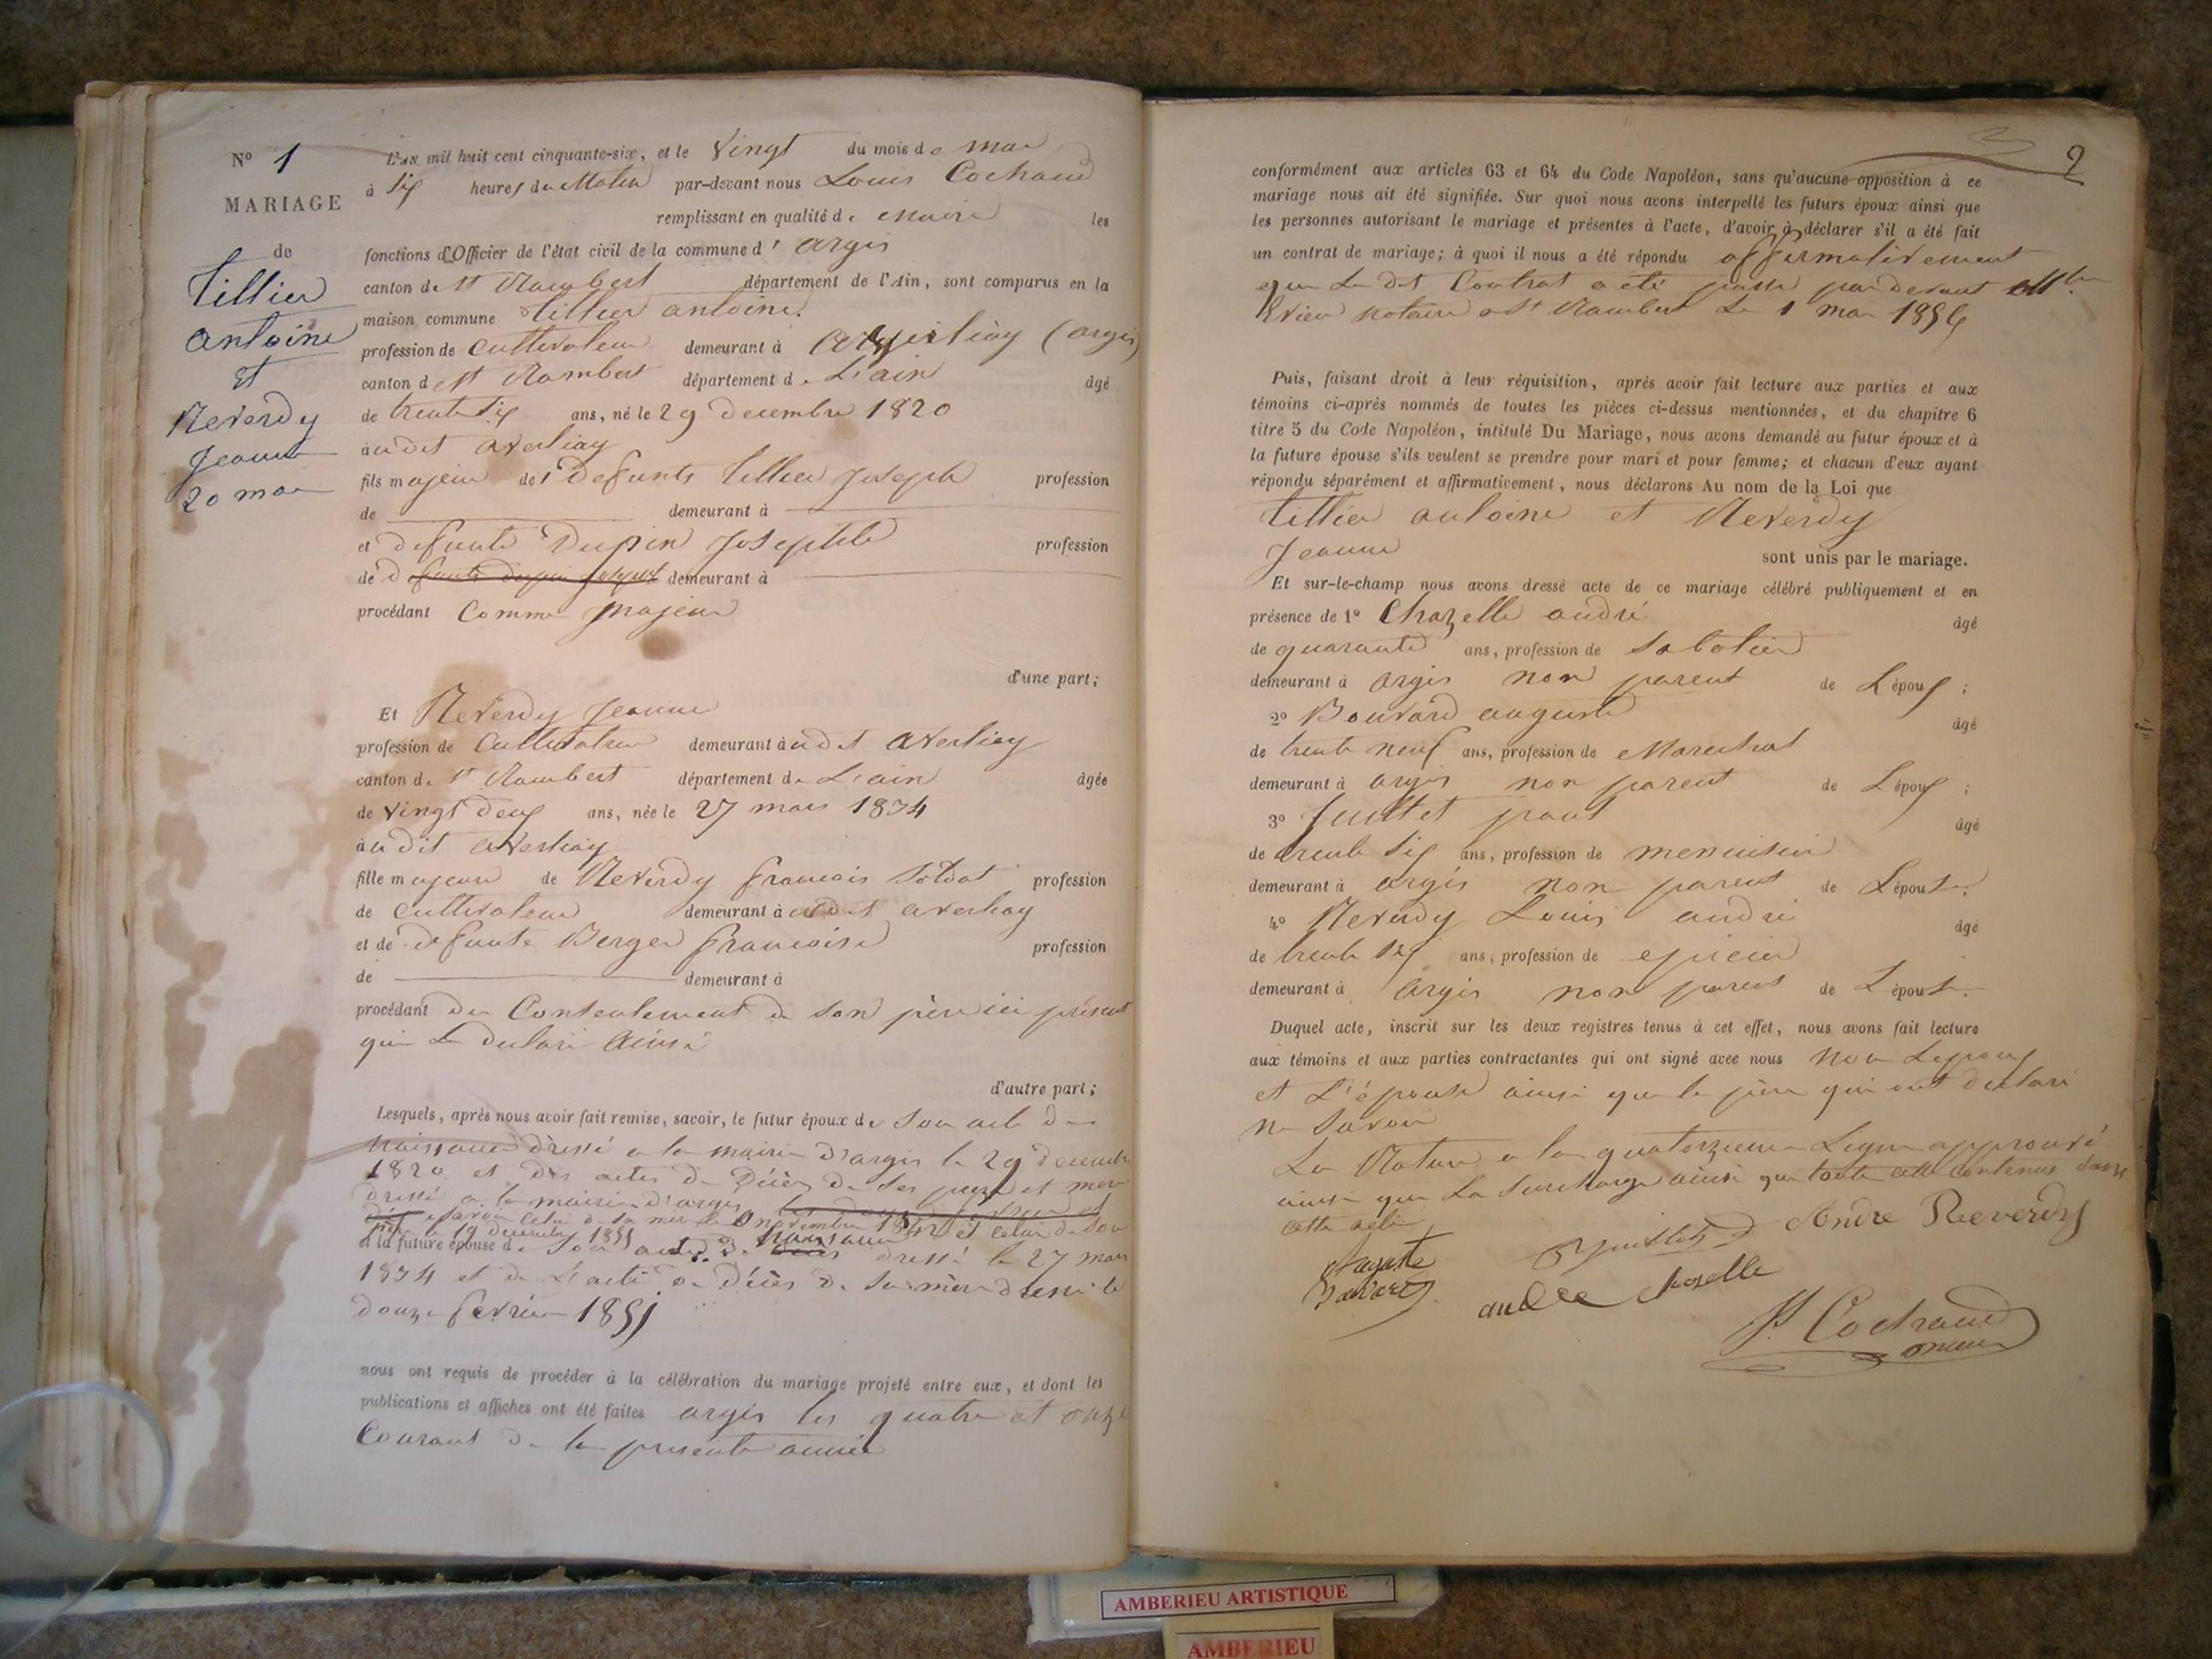 N° 1
MARIAGE
de
Tillier
Antoine
et
Reverdy
Jeanne
20 mai
L'an mil huit cent cinquante-six, et le Vingt du mois de mai
à six heures du Matin par-devant nous Louis Cochand
remplissant en qualité de Maire les
fonctions d'Officier de l'état civil de la commune d' argis
canton de St Rambert département de l'Ain, sont comparus en la
maison commune Tillier antoine
profession de cultivateur demeurant à (argis)
canton de St Rambert département de L'ain âgé
de trente six ans, né le 29 decembre 1820
audit averliay
fils majeur de defunts Tillier Joseph profession
de demeurant à
et defunte Dupin Josephte profession
de defunte dupin josephte demeurant à
procédant Comme majeur
d'une part;
Et Reverdy Jeanne
profession de Cultivatrice demeurant audit averliay
canton de St Rambert département de L'ain âgée
de vingt deux ans, née le 27 mars 1834
à udit averliay
fille majeure de Reverdy francois Soldat profession
de cultivateur demeurant à udit averliay
et de defunte Berger francoise profession
de demeurant à
procédant du Consentement de son père ici présent
qui La declaré ainsi
d'autre part;
Lesquels, après nous avoir fait remise, savoir, le futur époux de Son acte de
naissance dressé a la mairie d'argis le 29 decembre
1820 et des actes de Décès de ses père et mere
dressé a la mairie d'argis
savoir celui de sa mère le novembre et celui de son
père le 19 decembre 1851
et la future épouse de Son acte de naissance dressé le 27 mars
1834 et de L'acte de décès de sa mère dressé le
douze fevrier 1851
nous ont requis de procéder à la célébration du mariage projeté entre eux, et dont les
publications et affiches ont été faites argis les quatre et onze
Courant de la presente année
2
conformément aux articles 63 et 64 du Code Napoléon, sans qu'aucune opposition à ce
mariage nous ait été signifiée. Sur quoi nous avons interpellé les futurs époux ainsi que
les personnes autorisant le mariage et présentes à l'acte, d'avoir à déclarer s'il a été fait
un contrat de mariage; à quoi il nous a été répondu affirmativement
que Le dit Contrat a été passé par devant
notaire a St Rambert Le 1 mai 1856
Puis, faisant droit à leur réquisition, après avoir fait lecture aux parties et aux
témoins ci-après nommés de toutes les pièces ci-dessus mentionnées, et du chapitre 6
titre 5 du Code Napoléon, intitulé Du Mariage, nous avons demandé au futur époux et à
la future épouse s'ils veulent se prendre pour mari et pour femme; et chacun d'eux ayant
répondu séparément et affirmativement, nous déclarons Au nom de la Loi que
Tillier antoine et Reverdy
Jeanne sont unis par le mariage.
Et sur-le-champ nous avons dressé acte de ce mariage célébré publiquement et en
présence de 1° Chazelle andré âgé
de quarante ans, profession de Sabotier
demeurant à argis non parent de L'époux;
2° Bouvard auguste âgé
de trente neuf ans, profession de Marechal
demeurant à argis non parent de L'époux;
3° Juillet paul âgé
de trente six ans, profession de menuisier
demeurant à argis non parent de L'épouse.
4° Reverdy Louis andré âgé
de trente six ans, profession de epicier
demeurant à argis non parent de L'épouse.
Duquel acte, inscrit sur les deux registres tenus à cet effet, nous avons fait lecture
aux témoins et aux parties contractantes qui ont signé avec nous non Lepoux
et L'épouse ainsi que le père qui ont declaré
ne Savoir
La Rature a la quatorzieme Ligne approuvé
ainsi que La Surcharge ainsi que toute celle contenus dans
cette acte
Juillet André Reverdy
auguste
Bouvard
andré chazelle
Ls Cochand
maire
AMBERIEU ARTISTIQUE
AMBERIEU